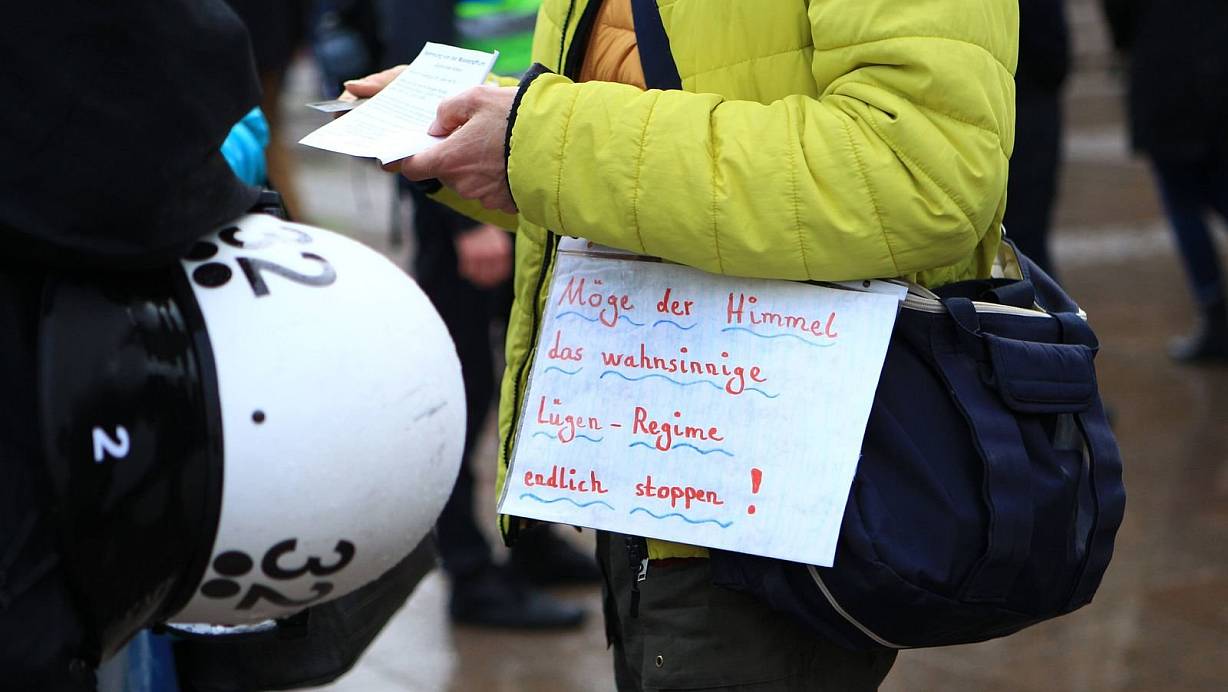 32
2
32
Möge der Himmel
das wahnsinnige
Lügen - Regime
endlich stoppen !